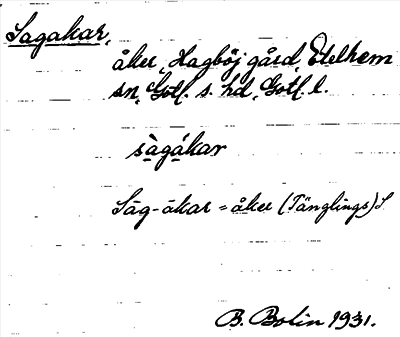 Sagakar,
åker, Hagböj gård, Etelhem
sn, Gotl. s. hd, Gotl. l.
sàgákar
Såg-åkar = åker (Tänglings) S
B. Bolin 1931.